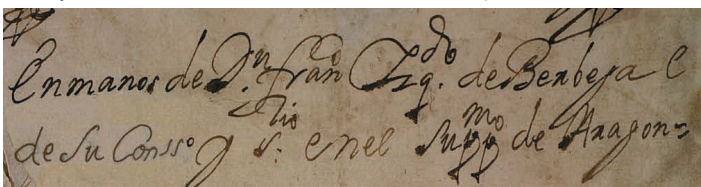 En manos de D.ⁿ franᶜᵒ Izq.ᵈᵒ de Berbega C
de Su Conssº y S.ʳⁱᵒ en el Supp.ᵐᵒ de Aragon=